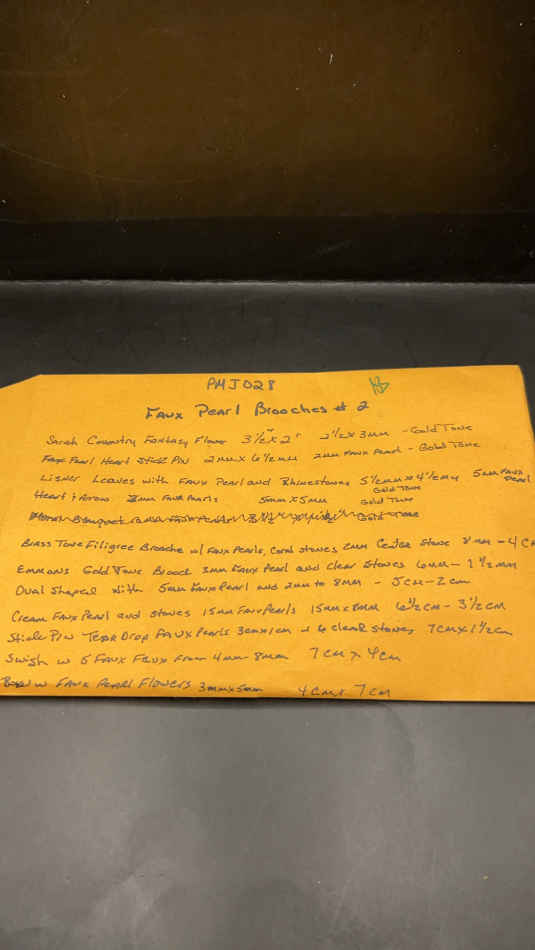 PMJ028
Faux Pearl Brooches # 2
Sarah Coventry Fantasy Flower 3 1/2" x 2" 2 1/2 x 3mm - Gold Tone
Faux Pearl Heart Stick Pin 2mm x 6 1/2mm 2mm Faux Pearl - Gold Tone
Lisner Leaves with Faux Pearl and Rhinestones 5 1/2mm x 4 1/2mm 5mm Faux Pearl
Gold Tone
Heart & Arrow 3mm Faux Pearls 5mm x 5mm Gold Tone
Gold Tone
Brass Tone Filigree Brooche w/ Faux Pearls, Coral stones 2mm Center Stone 8mm - 4 c
Emmons Gold Tone Brooch 3mm Faux Pearl and Clear Stones 6mm - 1 1/2mm
Oval Shaped with 5mm Faux Pearl and 2mm to 8mm - 5cm - 2cm
Cream Faux Pearl and Stones 15mm Faux Pearls 15mm x 8mm 6 1/2cm - 3 1/2cm
Stick Pin Tear Drop Faux Pearls 3cm x 1cm 6 clear stones 7cm x 1 1/2cm
Swish w 5 Faux from 4mm - 8mm 7cm x 4cm
w Faux Pearl Flowers 3mm x 5mm 4cm x 7cm